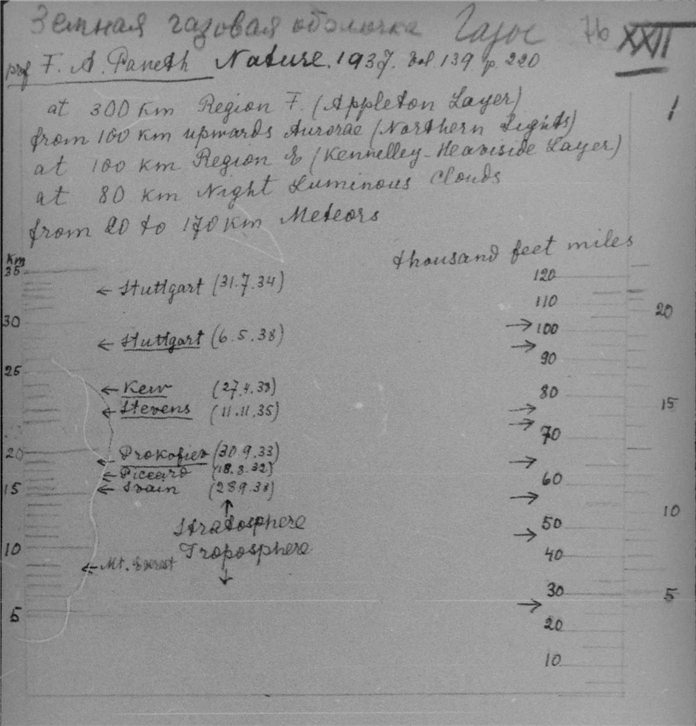 Земная газовая оболочка Газы 76 XXII
prof F. A. Paneth Nature. 1937. vol 139 p. 220
1
at 300 km Region F. (Appleton Layer)
from 100 km upwards Aurorae (Northern Lights)
at 100 km Region E (Kennelley-Heaviside Layer)
at 80 km Night Luminous Clouds
from 20 to 170 km Meteors
km thousand feet miles
35
← Stuttgart (31.7.34) 120
110
20
30
→ 100
← Stuttgart (6.5.38) →
90
25
← Kew 80
← Stevens (11.11.35) → 15
→ 70
20
← Prokofiev (30.9.33) →
← Piccard (18.8.32) 60
15 ← Spain →
↑ 10
Stratosphere 50
→
10 Troposphere 40
← Mt. Everest
↓
30 5
→
5 20
10